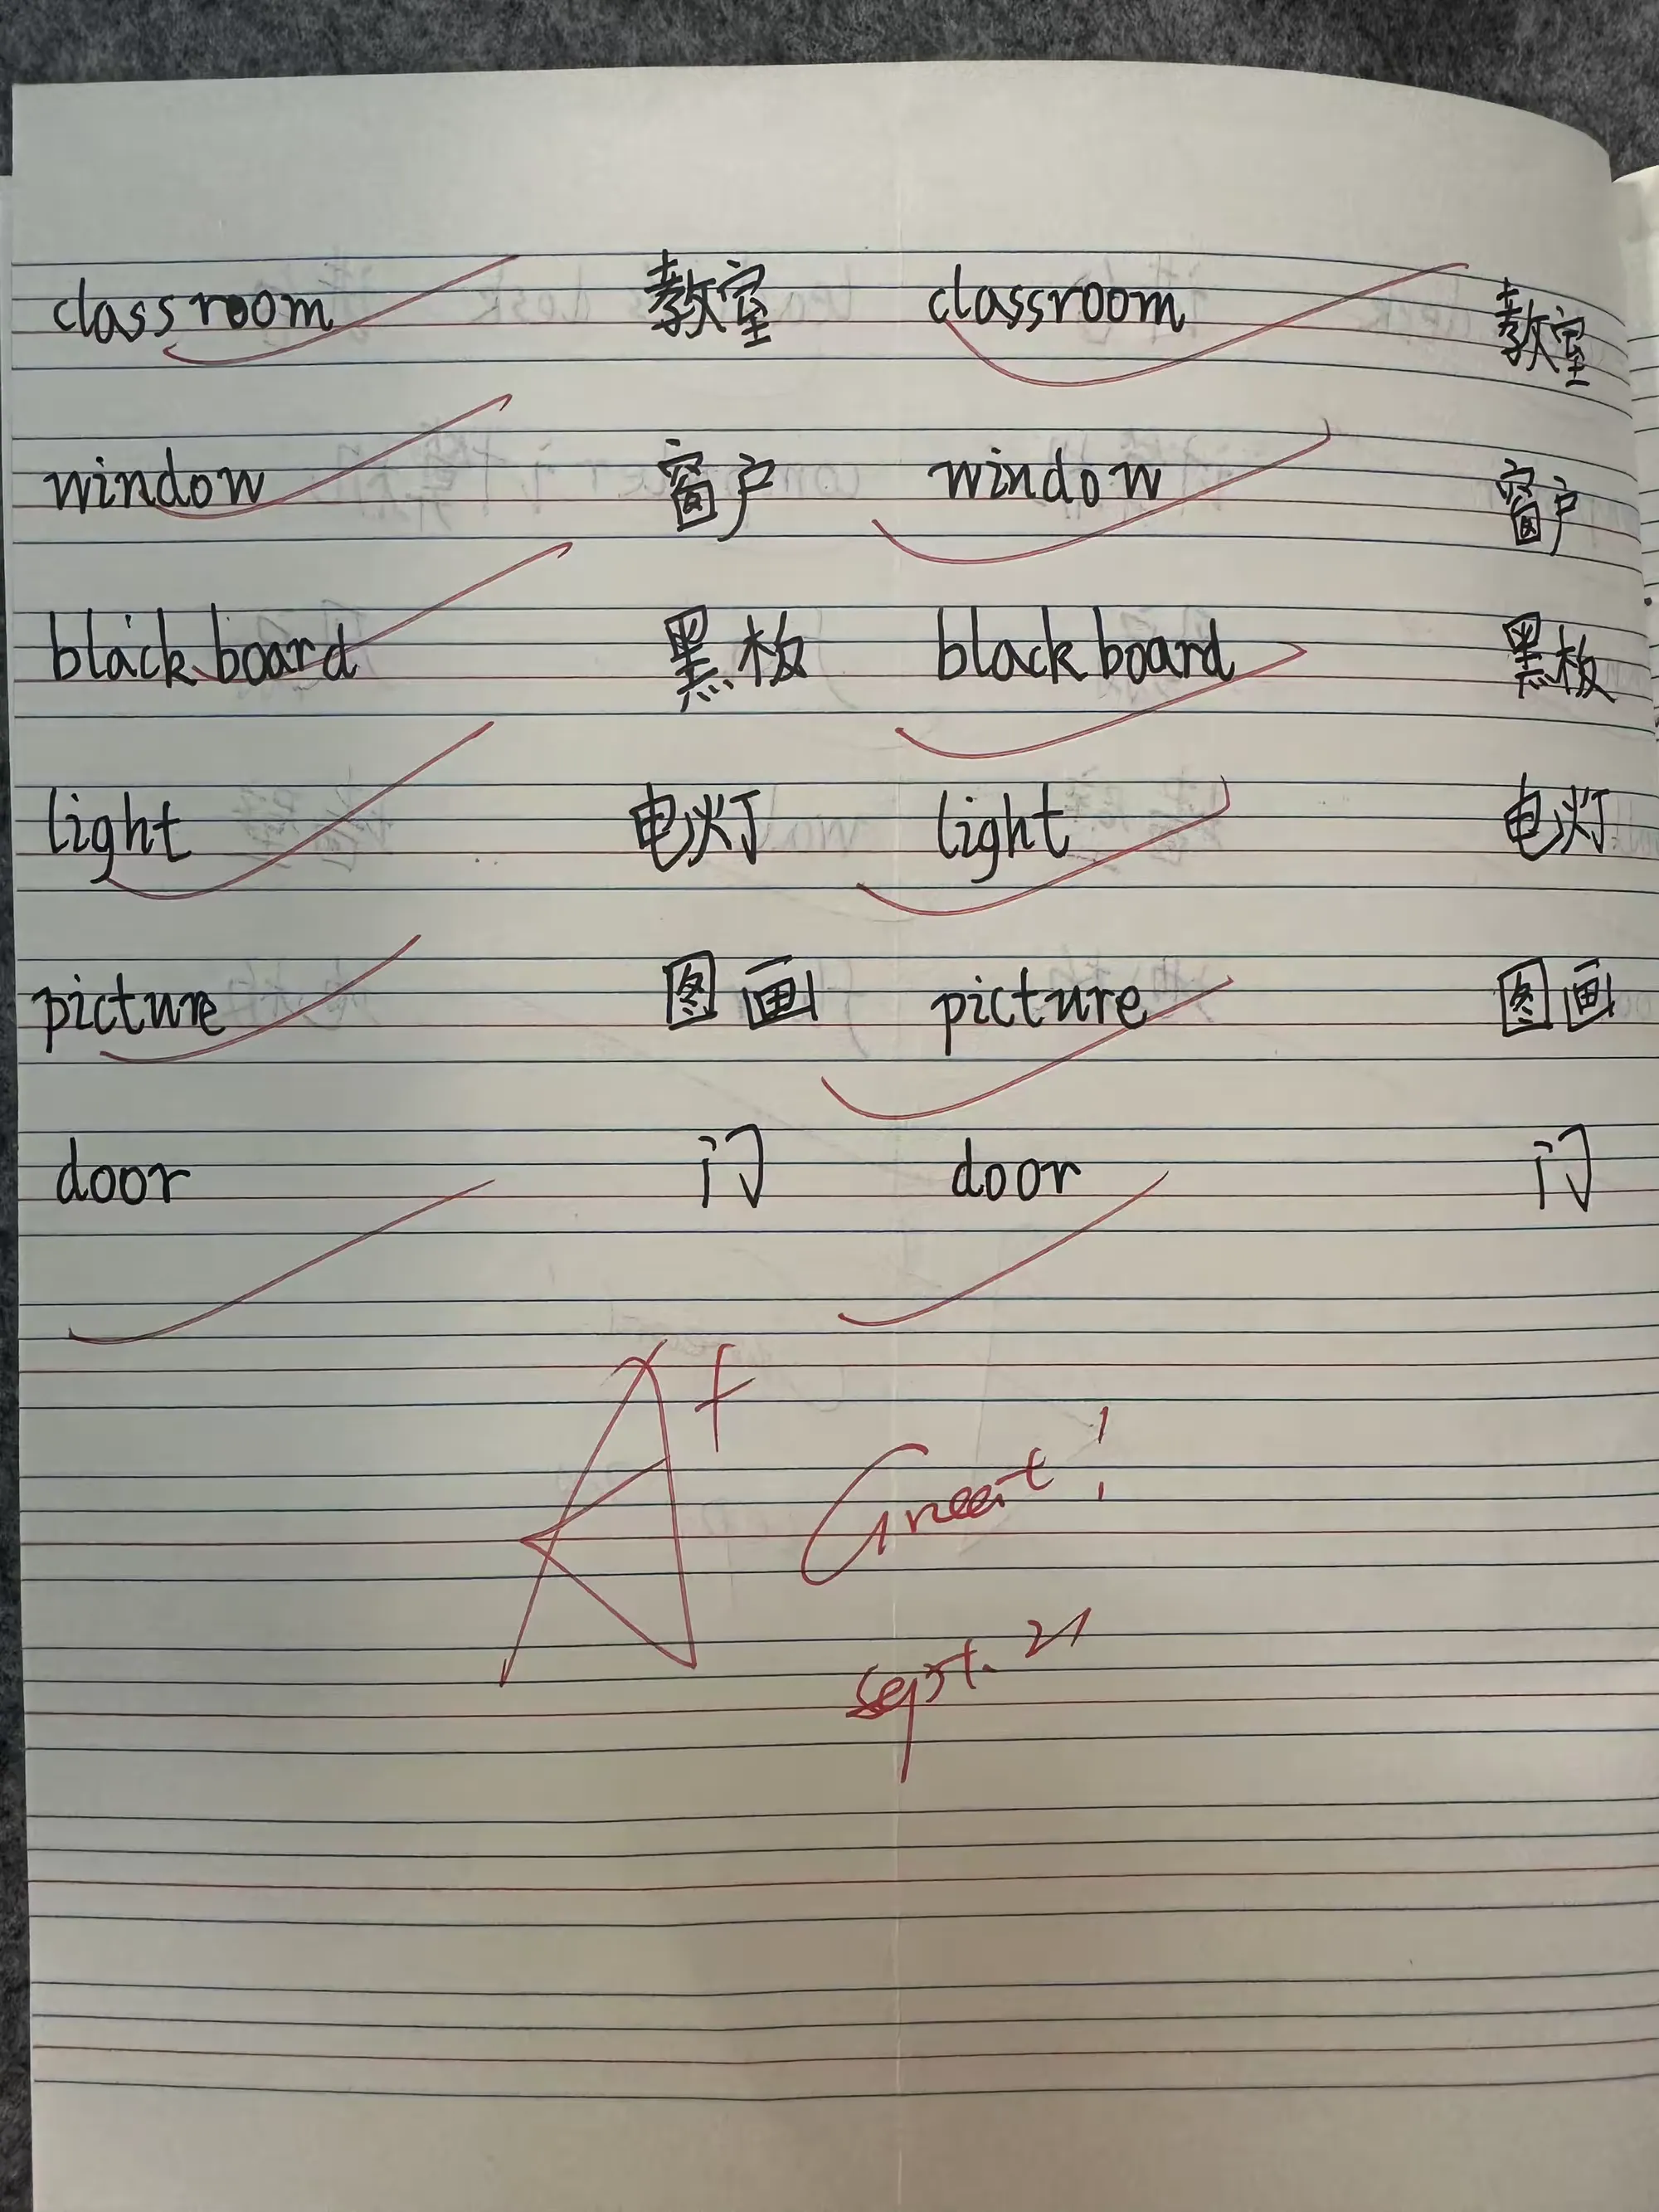 classroom 教室 classroom 教室
window 窗户 window 窗户
blackboard 黑板 blackboard 黑板
light 电灯 light 电灯
picture 图画 picture 图画
door 门 door 门
A+
Great!
Sept. 21